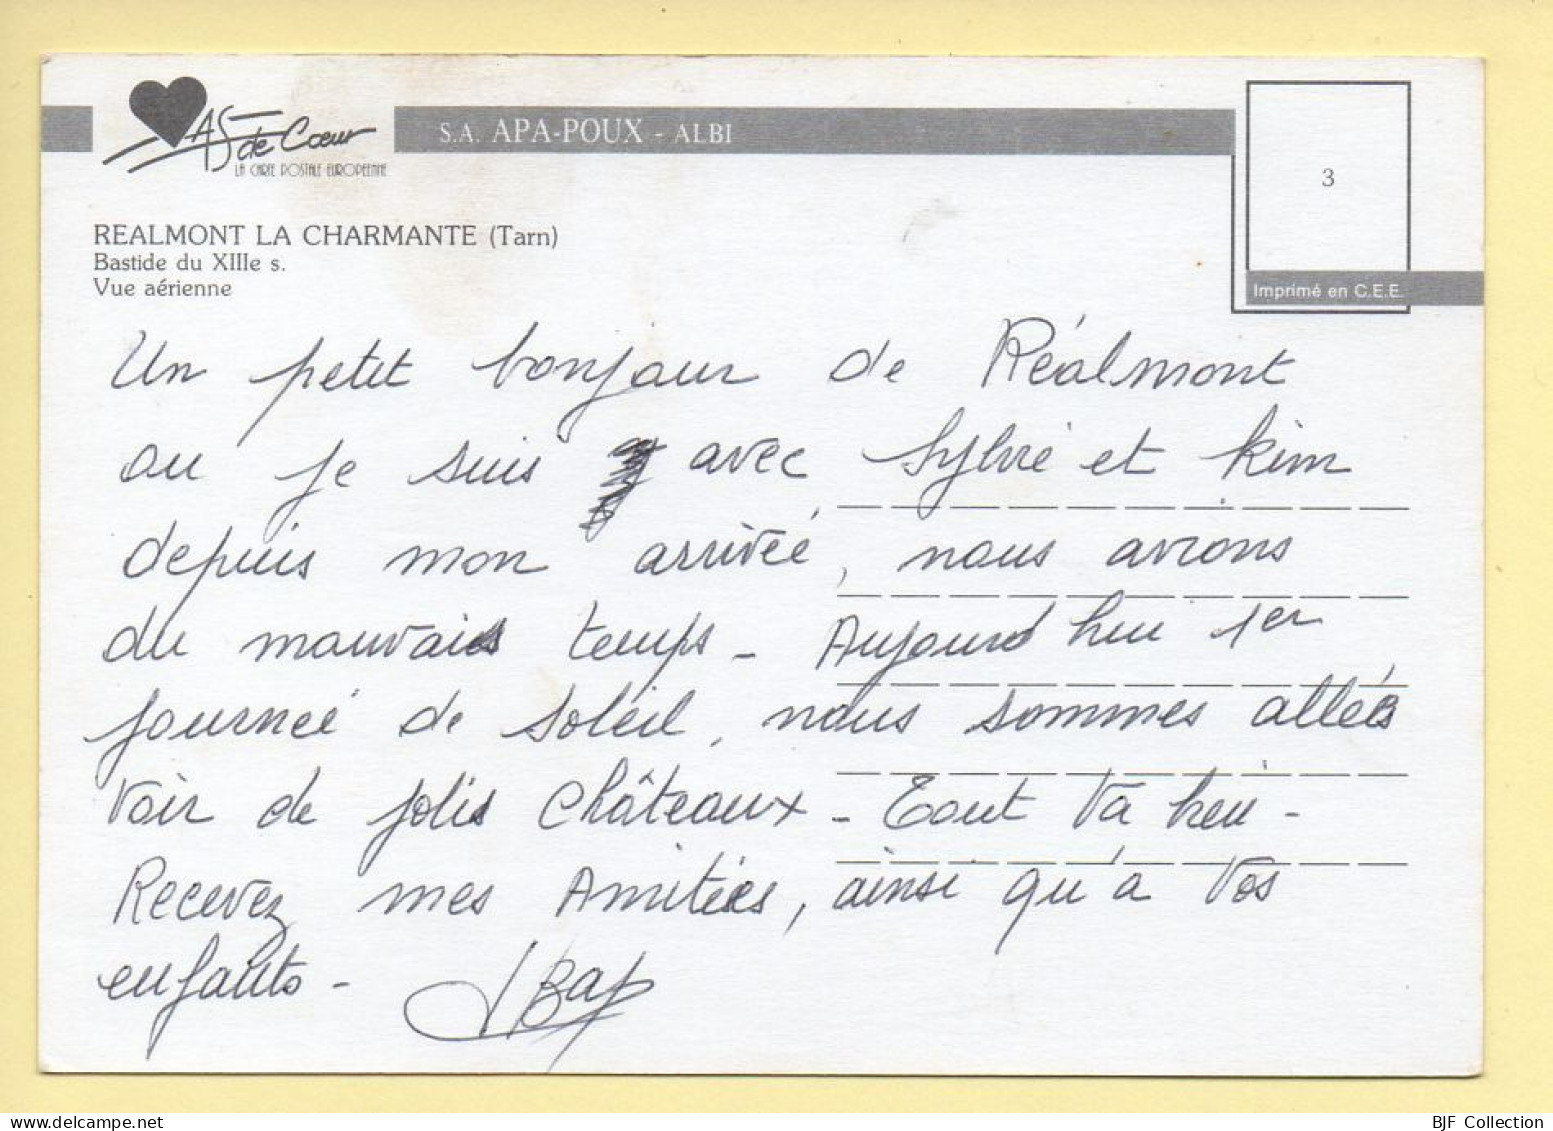 AS de Cœur
LA CARTE POSTALE EUROPEENNE
S.A. APA-POUX - ALBI
3
Imprimé en C.E.E.
REALMONT LA CHARMANTE (Tarn)
Bastide du XIIIe s.
Vue aérienne
Un petit bonjour de Réalmont
ou je suis avec Sylvie et Kim
depuis mon arrivée, nous avions
du mauvais temps - Aujourd'hui 1er
journée de soleil, nous sommes allées
voir de jolis châteaux - Tout va bien -
Recevez mes Amitiés, ainsi qu'a vos
enfants -
BJF Collection